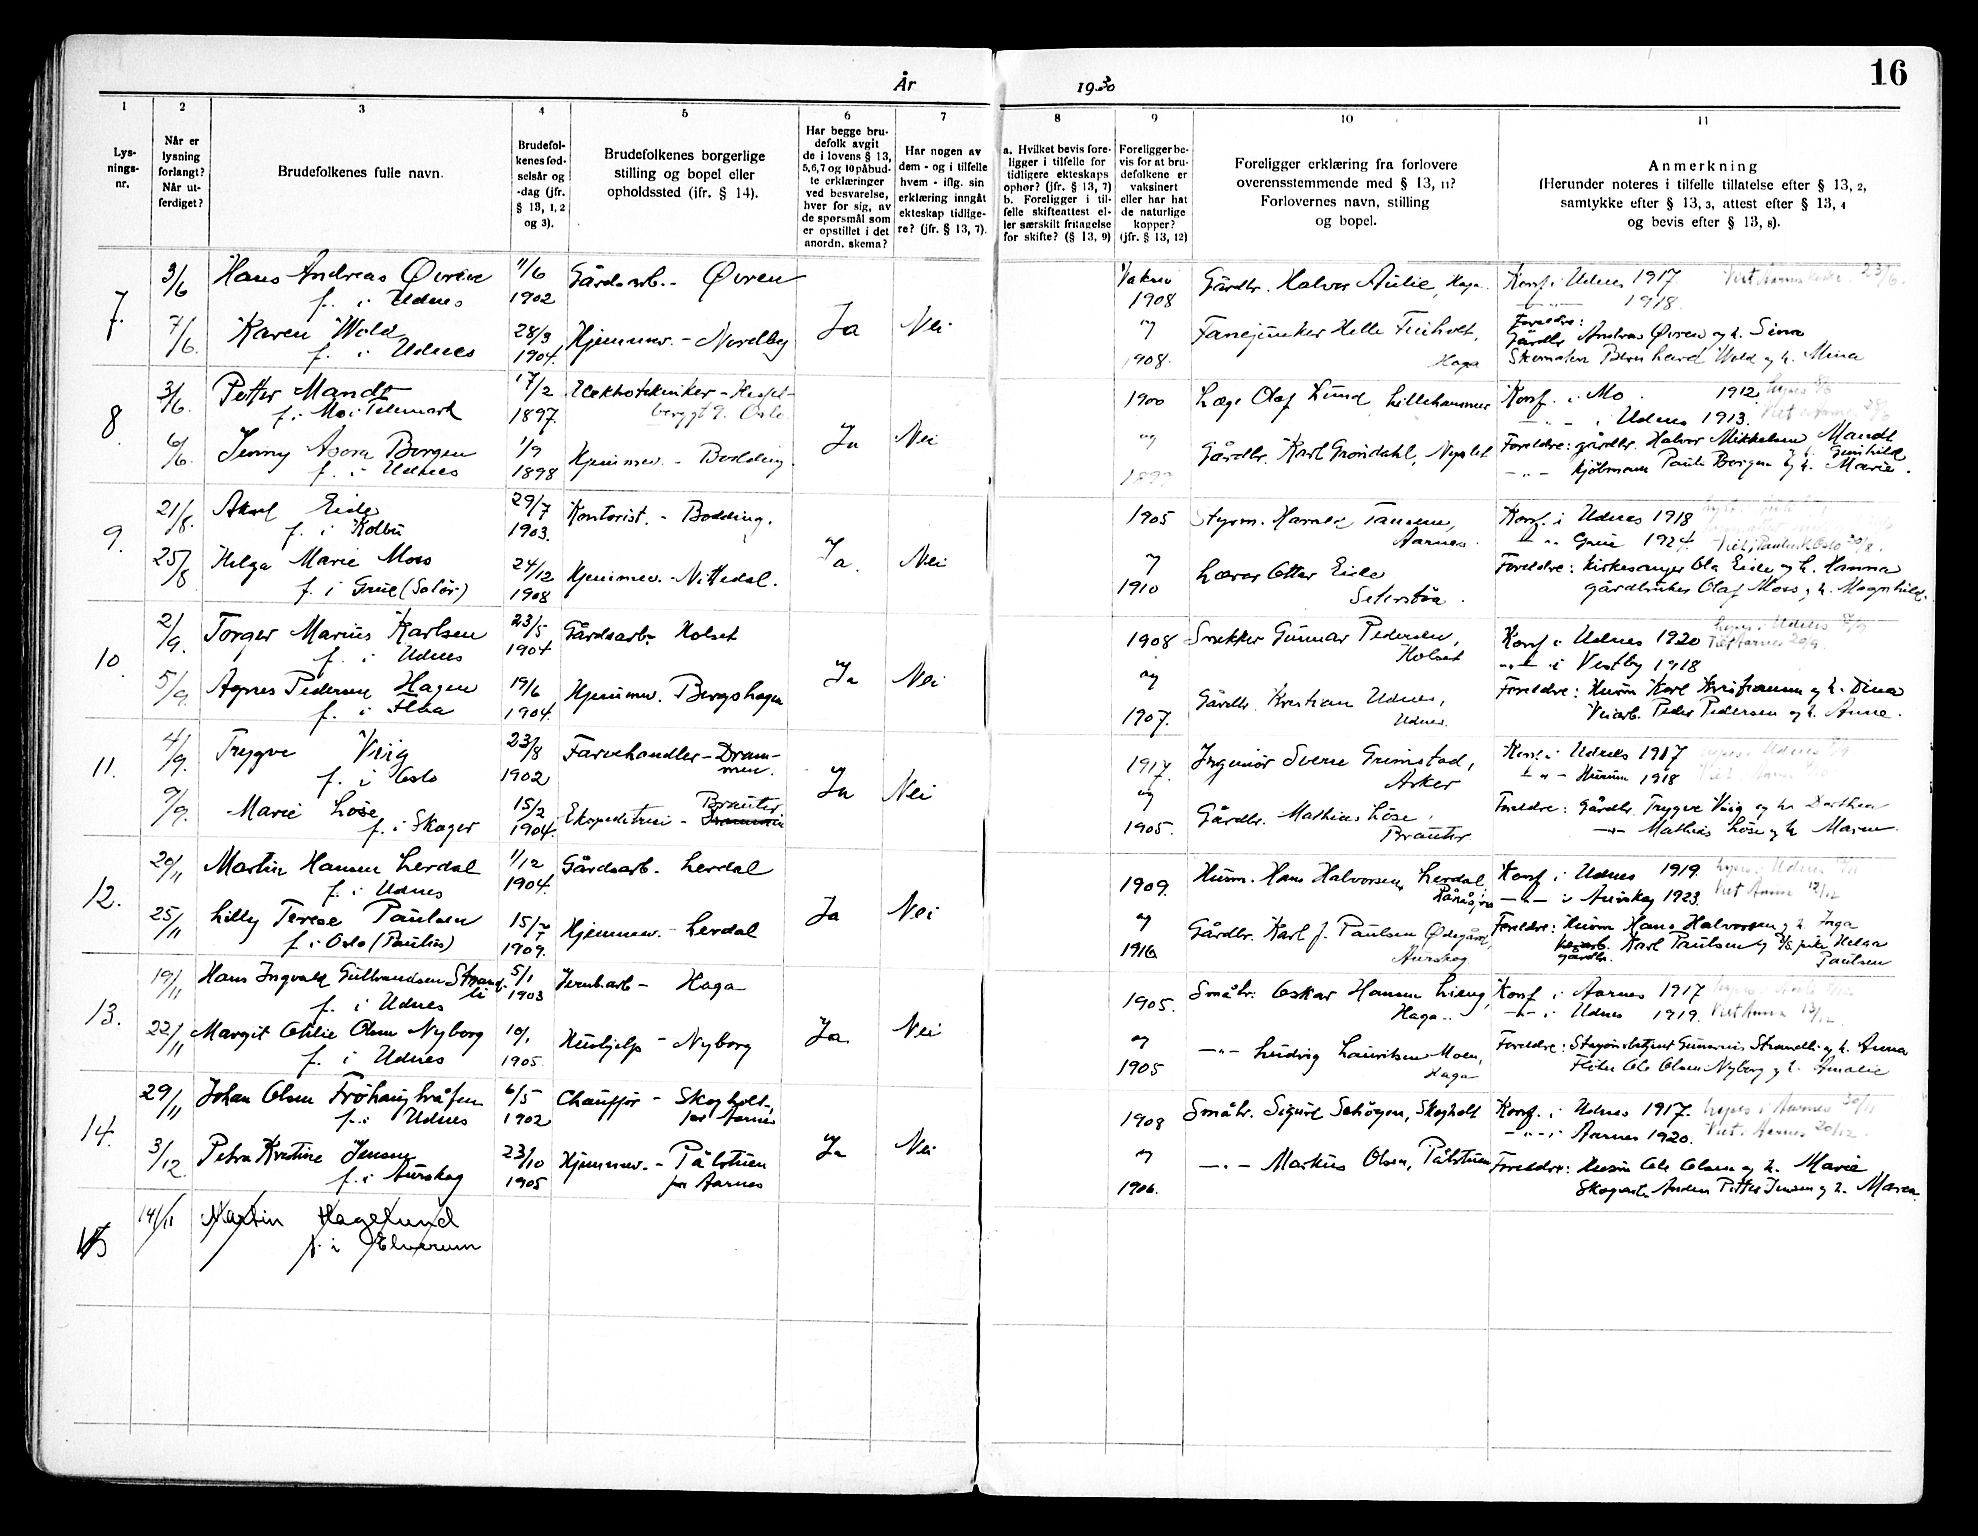 16
År 1930
1
Lys-
nings-
nr.
2
Når er
lysning
forlangt?
Når ut-
ferdiget?
3
Brudefolkenes fulle navn.
4
Brudefol-
kenes fød-
selsår og
-dag (jfr.
§ 13, 1, 2
og 3).
5
Brudefolkenes borgerlige
stilling og bopel eller
opholdssted (ifr. § 14).
6
Har begge bru-
defolk avgit
de i lovens § 13,
5,6,7 og 10 påbud-
te erklæringer
ved besvarelse,
hver for sig, av
de spørsmål som
er opstillet i det
anordn. skema?
7
Har nogen av
dem - og i tilfelle
hvem - iflg. sin
erklæring inngåt
ekteskap tidlige-
re? (jfr. § 13, 7).
8
a. Hvilket bevis fore-
ligger i tilfelle for
tidligere ekteskaps
ophør? (jfr. § 13, 7)
b. Foreligger i til-
felle skifteattest el-
ler særskilt fritagelse
for skifte? (§ 13, 9)
9
Foreligger be-
vis for at bru-
defolkene er
vaksinert
eller har hat
de naturlige
kopper?
(jfr. § 13, 12)
10
Foreligger erklæring fra forlovere
overensstemmende med § 13, 11?
Forlovernes navn, stilling
og bopel.
11
Anmerkning
(Herunder noteres i tilfelle tillatelse efter § 13, 2,
samtykke efter § 13, 3, attest efter § 13, 4
og bevis efter § 13, 8).
7.
3/6
7/6.
Hans Andreas Øvren
f. i Udnes
Karen Wold
f. i Udnes
11/6
1902
28/3
1904.
Gårdsarb. - Øvren
Hjemmev. - Nordby
Ja
Nei
1908
og
1908.
Gårdbr. Halvor Aulie, Haga.
Fanejunker Helle
Haga
Konf. i Udnes 1917. 23/6.
1918.
Foreldre:
Gårdbr Andreas Øvren og h. Sina
Bernhard Wold og h. Mina
8.
3/6.
6/6.
Petter Mandt
f. i Mo i Telemark
Jenny Borgen
f. i Udnes
17/2
1897.
1/9
1898
Oslo.
Hjemmev. - Bodding.
Ja
Nei
1900
og
1899
Læge Olaf Lund Lillehammer
Gårdbr. Karl Grøndahl,
Konf. i Mo 1912.
- " - i Udnes 1913.
Foreldre: gårdbr. Halvor Mikkelsen Mandt og h. Gunhild
- " - kjøbmann Paul Borgen og h. Marie.
9.
21/8.
25/8
Aksel Eide
f. i Kolbu
Helga Marie Moss
f. i Grue (Solør)
29/7
1903.
24/12
1908
Kontorist. - Bodding.
Hjemmev. - Nittedal.
Ja.
Nei
1905
og
1910
Harald
Aarnes.
Lærer Otter Eide
Seterstøa.
Konf. i Udnes 1918
Grue 1924. Oslo 30/8.
Foreldre: kirkesanger Ola Eide og h. Hanna
gårdbruker Olaf Moss og h. Magnhild.
10.
2/9.
5/9.
Torger Marius Karlsen
f. i Udnes
Agnes Pedersen Hagen
f. i Flaa
23/5
1904
19/6
1904.
Gårdsarb. Holset
Hjemmev. Bergshagen
Ja
Nei
1908
og
1907.
Snekker Gunnar Pedersen,
Holset
Gårdbr. Kristian Udnes,
Udnes
Konf i Udnes 1920 20/9.
- " - i Vestby 1918
Foreldre: Husm Karl Kristiansen og h. Dina
Veiarb. Peder Pedersen og h. Anne.
11.
4/9.
9/9.
Trygve Wiig
f. i Oslo
Marie Løse
f. i Skoger
23/8
1902
15/2
1904.
Farvehandler - Dram-
men.
Ekspeditrise - Brauter
Ja
Nei
1917.
og
1905.
Ingeniør Sverre Grimstad,
Aker
Gårdbr. Mathias Løse,
Brauter
Konf. i Udnes 1917
Hurum 1918
Foreldre: Gårdbr. Trygve Wiig og h. Dorthea
- " - Mathias Løse og h Maren.
12.
20/11
25/11
Martin Hansen Lerdal
f. i Udnes
Lilly Terese Paulsen
f. i Oslo (Paulus)
1/12
1904.
1909.
Gårdsarb. Lerdal
Hjemmev. - Lerdal
Ja
Nei
1909.
og
1916
Husm. Hans Halvorsen, Lerdal,
Gårdbr. Karl J. Paulsen Ødegård,
Aurskog
Konf i Udnes 1919.
- " - i Aurskog 1923.
Foreldre: Husm Hans Halvorsen og h. Inga
gårdbr. Karl Paulsen og Helga
Paulsen
13.
19/11
22/11
Hans Ingvald Gulbrandsen Strand-
li
f. i Udnes
Margit Otilie Olsen Nyborg
f. i Udnes
5/1
1903
10/1
1905.
Jernbarb - Haga
Hushjelp - Nyborg
Ja.
Nei
1905.
og
1905
Småbr. Oskar Hansen
Haga.
- " - Ludvig Lauritsen Moen,
Haga
Konf i Aarnes 1917
- " - i Udnes 1919. 13/12
Foreldre: Gunerius Strandli og h. Anna
Ole Olsen Nyborg og h. Amalie
14.
29/11
3/12
Johan Olsen
f. i Udnes
Petra Kristine Jensen
f. i Aurskog
6/5
1902
23/10
1905
Chauffør - Skogholt,
per Aarnes
Hjemmev. - Pålstuen
per Aarnes
Ja
Nei
1908
og
1906.
Småbr. Sigurd Schøyen, Skogholt
- " - Markus Olsen, Pålstuen
Konf. i Udnes 1917. Lyses i Aarnes 30/11
- " - i Aarnes 1920. Viet i Aarnes 20/12.
Foreldre: Husm Ole Olsen og h. Marie
Skogarb. Anders Petter Jensen og h. Maren
15
14/11
Martin Hagelund
f. i Elverum